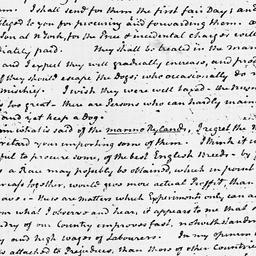 m. I shall send for them the first fair Day; and
bliged to you for procuring and forwarding them: a
son at N York, for the Price & incidental Charges will
diately paid. They shall be treated in the man
and I expect they will gradually increase, and pro
if they should escape the dogs; who occasionally do
mischief. I wish they were well taxed - the
is too great - there are Persons who can hardly main
and yet keep a dog.
om what is said of the manno Ryland, I regret the
retard your importing some of them. I think it
ful to procure some, of the best English Breeds - by
a Race may possibly be obtained, which in point
reas together, would give more actual Profit, than
aves. - These are matters which Experiments only can
om what I observe and hear, it appears to me that
dry of our Country improves fast, notwithstandin
y and high wages of Labourers. In my opinion
is attached to Prejudices, than those of other Countries